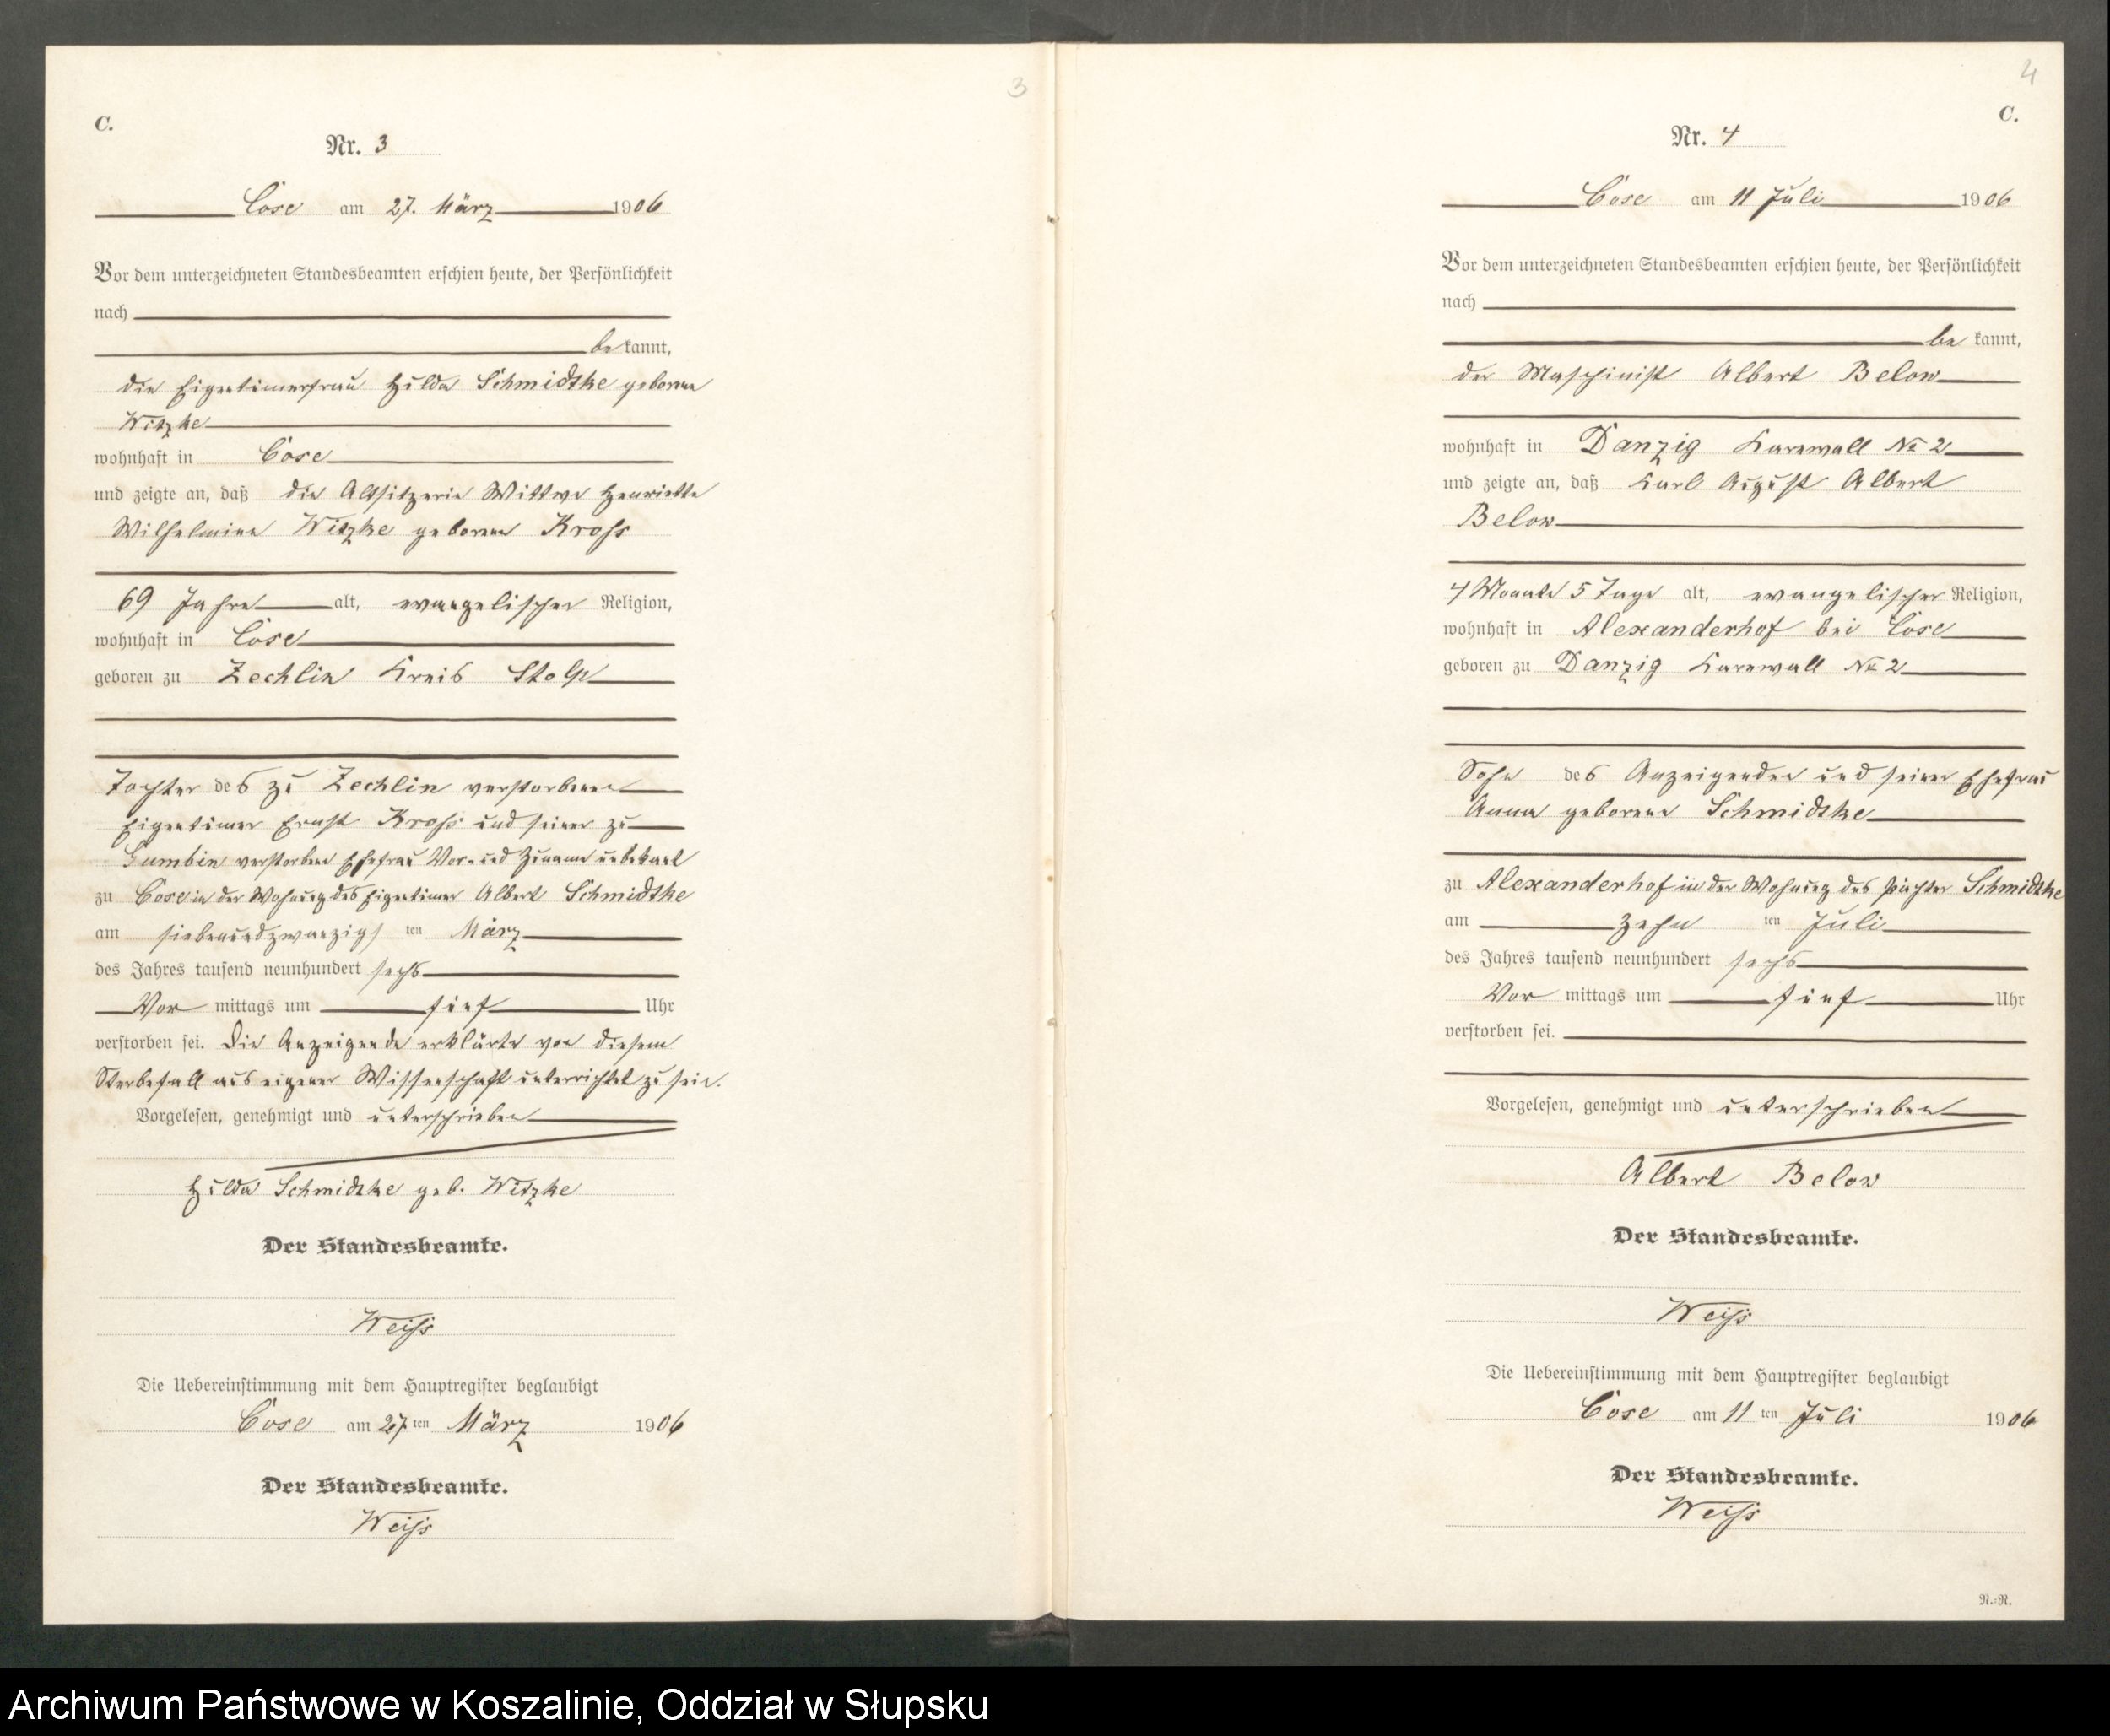 3
C.
Nr. 3
Cose am 27. März 1906
Vor dem unterzeichneten Standesbeamten erschien heute, der Persönlichkeit
nach
bekannt,
die Eigentümerfrau Hulda Schmidtke geborene
Witzke
wohnhaft in Cose
und zeigte an, daß die Altsitzerin Wittwe Henriette
Wilhelmine Witzke geborene Kroß
69 Jahre alt, evangelischer Religion,
wohnhaft in Cose
geboren zu Zechlin Kreis Stolp
Tochter des zu Zechlin verstorbenen
Eigentümer Ernst Kroß und seiner zu
Lumbin verstorbene Ehefrau Vor- und Zuname unbekant
zu Cose in der Wohnung des Eigentümer Albert Schmidtke
am siebenundzwanzigs ten März
des Jahres tausend neunhundert sechs
Vor mittags um fünf Uhr
verstorben sei. Die Anzeigende erklärte von diesem
Sterbefall aus eigener Wissenschaft unterrichtet zu sein.
Vorgelesen, genehmigt und unterschrieben
Hulda Schmidtke geb. Witzke
Der Standesbeamte.
Weiß
Die Uebereinstimmung mit dem Hauptregister beglaubigt
Cose am 27. ten März 1906
Der Standesbeamte.
Weiß
4
C.
Nr. 4
Cose am 11 Juli 1906
Vor dem unterzeichneten Standesbeamten erschien heute, der Persönlichkeit
nach
be kannt,
der Maschinist Albert Below
wohnhaft in Danzig Karrwall № 2
und zeigte an, daß Karl August Albert
Below
4 Monate 5 Tage alt, evangelischer Religion,
wohnhaft in Alexanderhof bei Cose
geboren zu Danzig Karrwall № 2
Sohn des Anzeigenden und seiner Ehefrau
Anna geborene Schmidtke
zu Alexanderhof in der Wohnung des Pächter Schmidtke
am zehn ten Juli
des Jahres tausend neunhundert sechs
Vor mittags um fünf Uhr
verstorben sei.
Vorgelesen, genehmigt und unterschrieben
Albert Below
Der Standesbeamte.
Weiß
Die Uebereinstimmung mit dem Hauptregister beglaubigt
Cose am 11 ten Juli 1906
Der Standesbeamte.
Weiß
N.=N.
Archiwum Państwowe w Koszalinie, Oddział w Słupsku